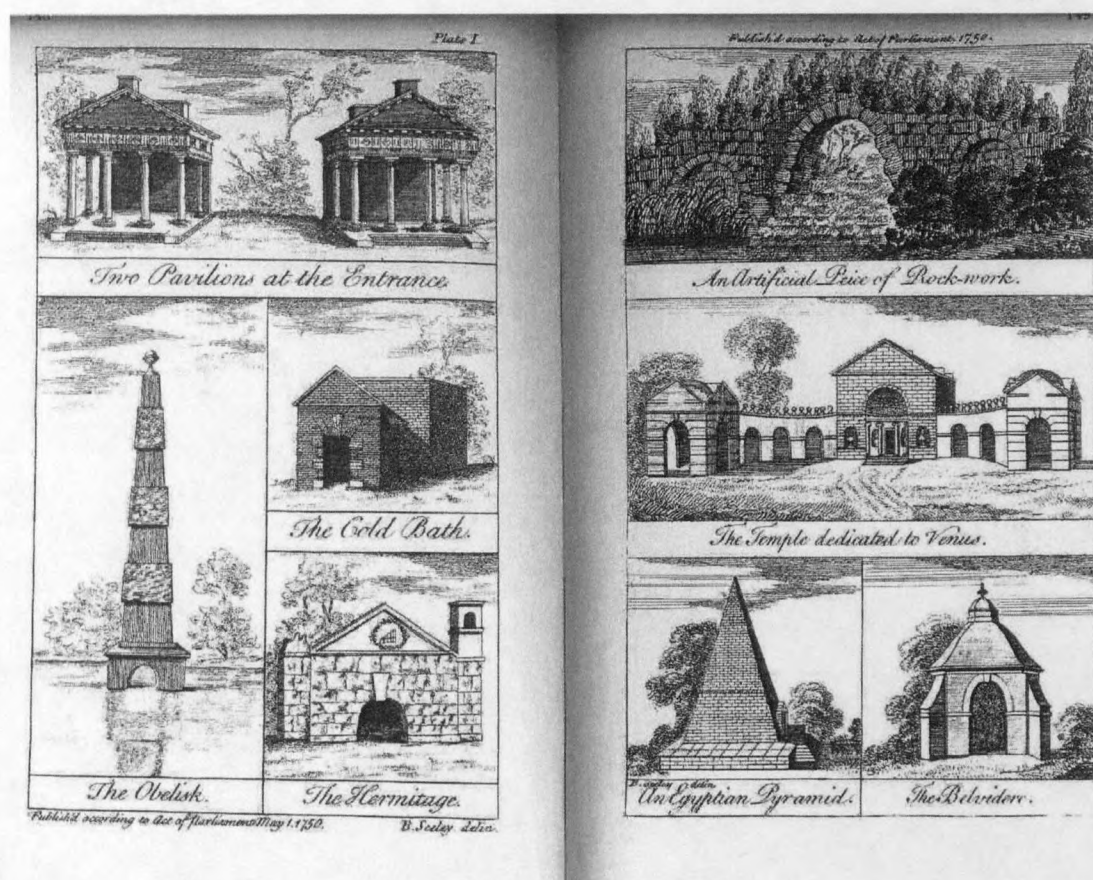 Plate I
Two Pavilions at the Entrance.
The Cold Bath.
The Obelisk.
The Hermitage.
Publish'd according to Act of Parliament May 1. 1750.
B. Seeley delin.
Publish'd according to Act of Parliament. 1750.
An Artificial Peice of Rock-work.
The Temple dedicated to Venus.
B. Seeley delin.
An Egyptian Pyramid.
The Belvidere.